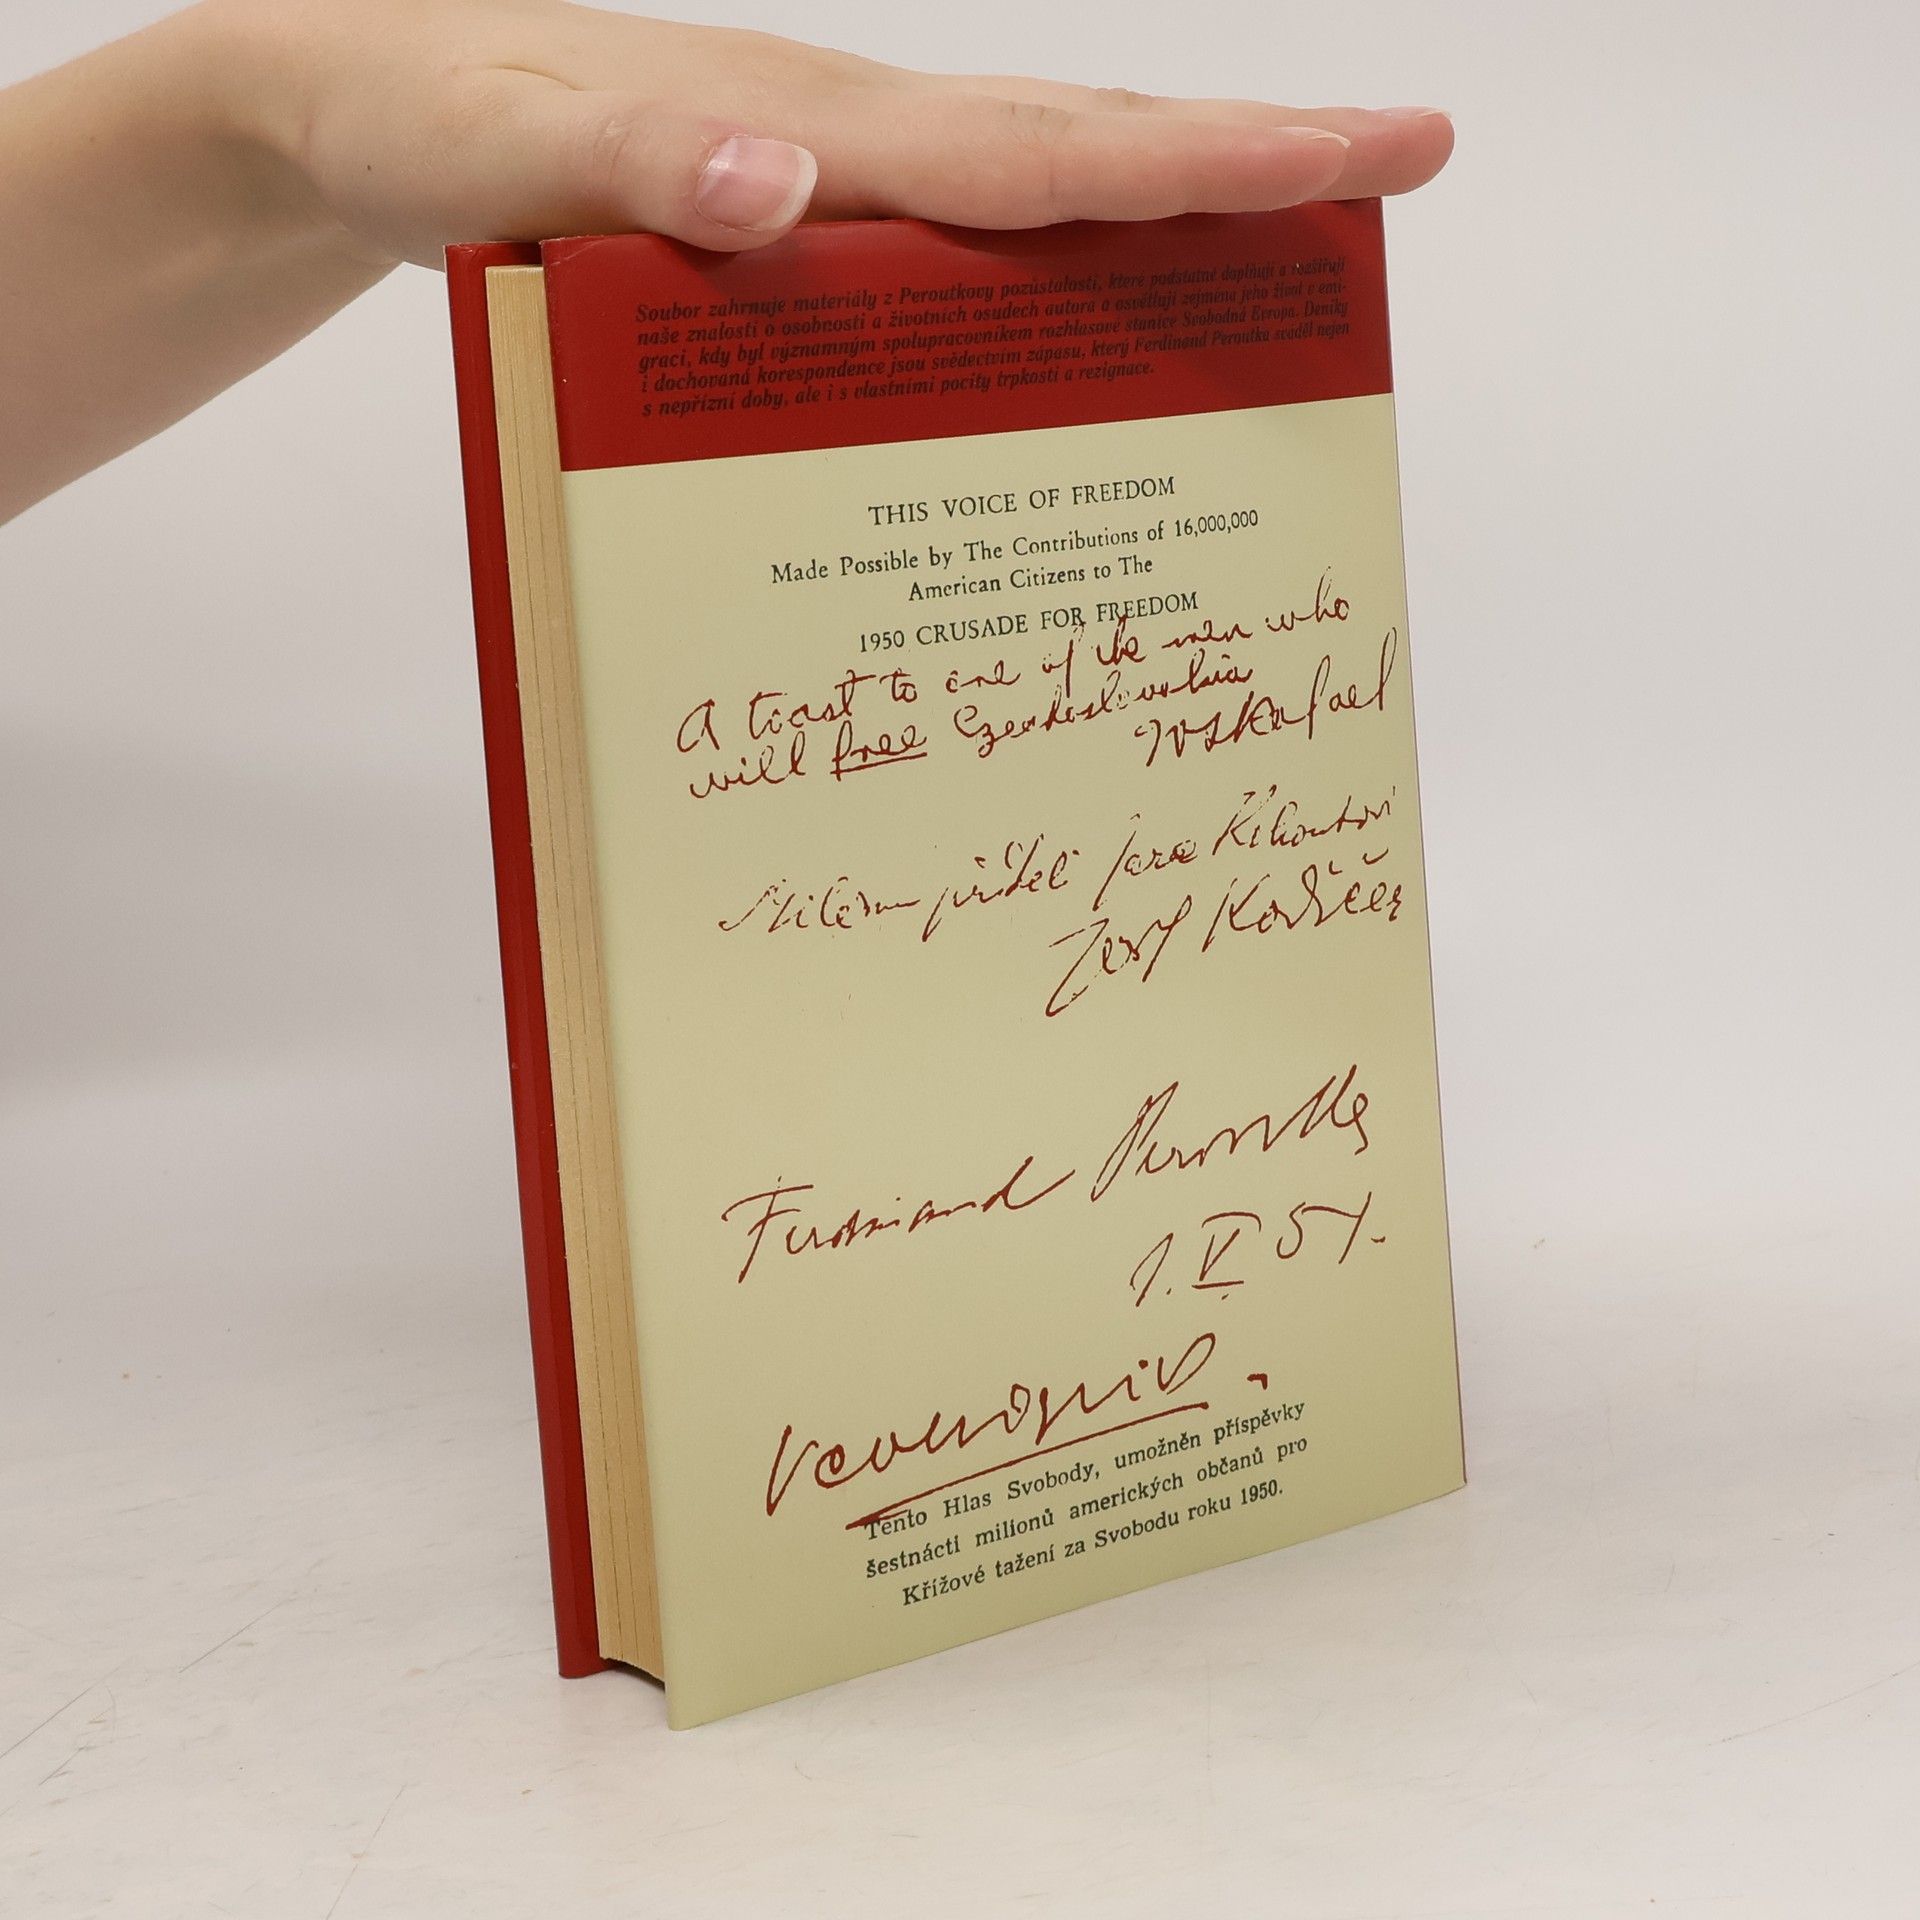 Soubor zahrnuje materiály z Peroutkovy pozůstalosti, které podstatně doplňují a rozšiřují
naše znalosti o osobnosti a životních osudech autora a osvětlují zejména jeho život v emi-
graci, kdy byl významným spolupracovníkem rozhlasové stanice Svobodná Evropa. Deníky
i dochovaná korespondence jsou svědectvím zápasu, který Ferdinand Peroutka sváděl nejen
s nepřízní doby, ale i s vlastními pocity trpkosti a rezignace.
THIS VOICE OF FREEDOM
Made Possible by The Contributions of 16,000,000
American Citizens to The
1950 CRUSADE FOR FREEDOM
A toast to one of the men who
will free Czechoslovakia
Milému příteli Jara Kohoutovi
Josef
Ferdinand Peroutka
1. V. 51.
Tento Hlas Svobody, umožněn příspěvky
šestnácti milionů amerických občanů pro
Křížové tažení za Svobodu roku 1950.